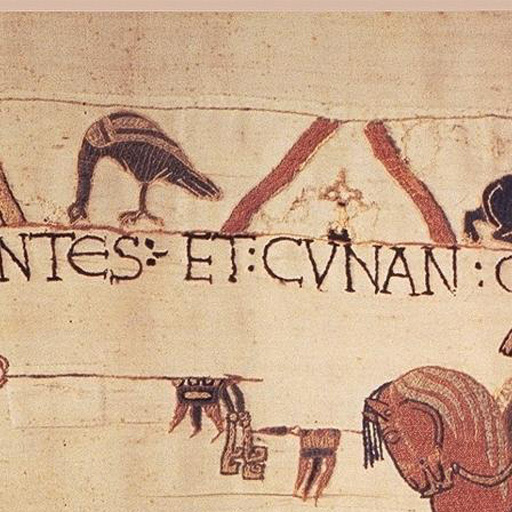 NTES: ET:CVNAN :